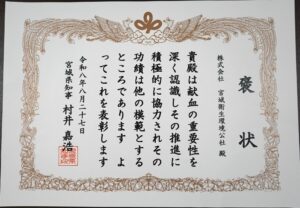 褒状
株式会社 宮城衛生環境公社 殿
貴殿は献血の重要性を
深く認識しその推進に
積極的に協力されその
功績は他の模範とする
ところであります よ
ってこれを表彰します
令和八年八月二十七日
宮城県知事 村井嘉浩